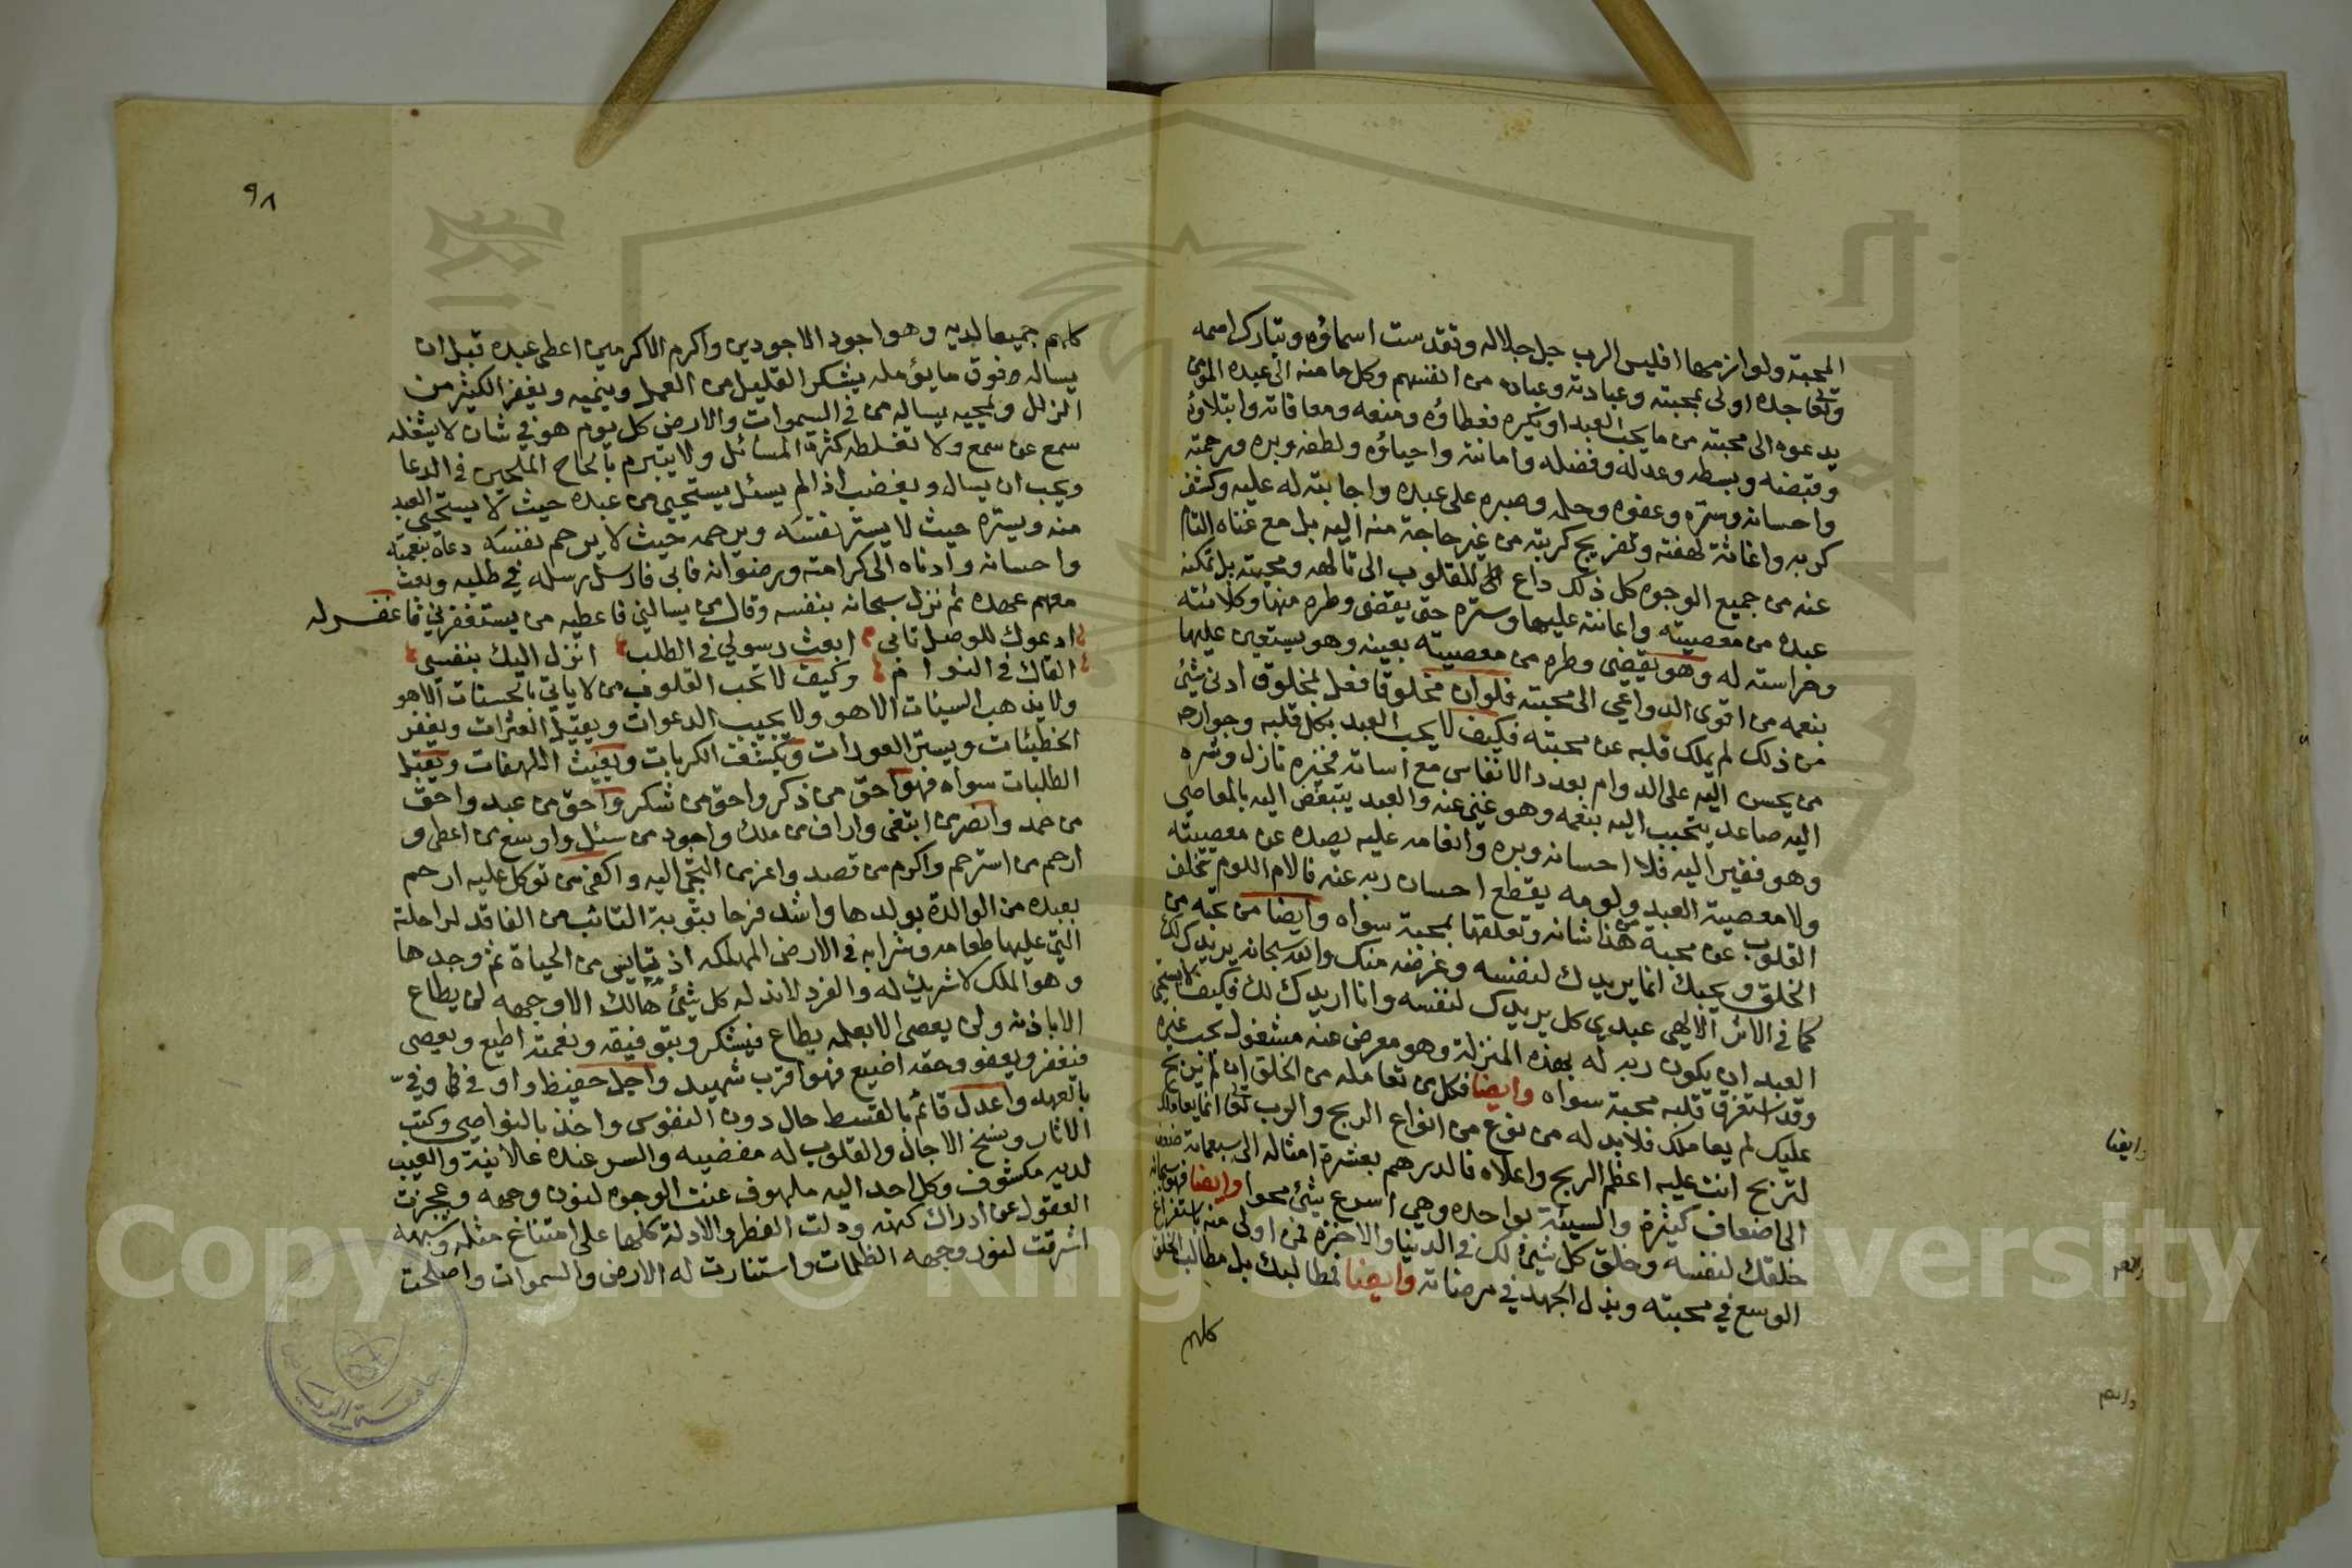 المحبة ولوازمها افليس الرب جل جلاله وتقدست اسماؤه وتبارك اسمه
وتعا جده اولى بمحبته وعبادته وعباده من انفسهم وكل ما منه الى عبده المؤمن
يدعوه الى محبته من ما يحب العبد او يكره فعطاؤه ومنعه ومعافاته وابتلاؤه
وقبضه وبسطه وعدله وفضله واماتته واحياؤه ولطفه وبره ورحمته
واحسانه وستره وعفوه وحلمه وصبره على عبده واجابته له عليه وكشف
كربه واغاثة لهفته وتفريج كربته من غير حاجة منه اليه بل مع غناه التام
عنه من جميع الوجوه كل ذلك داع للقلوب الى تالهه ومحبته بل تمكنه
عبده من معصيته واعانته عليها وستره حتى يقضي وطره منها وكلائته
وحراسته له وهو يقضي وطره من معصيته بعينه وهو يستعين عليها
بنعمه من اقوى الدواعي الى محبته فلو ان مخلوقا فعل لمخلوق ادنى شيئ
من ذلك لم يملك قلبه عن محبته فكيف لا يحب العبد بكل قلبه وجوارحه
من يحسن اليه على الدوام بعدد الانفاس مع اسائته فخيره نازل وشره
اليه صاعد يتحبب اليه بنعمه وهو غني عنه والعبد يتبغض اليه بالمعاصي
وهو فقير اليه فلا احسانه وبره وانعامه عليه يصده عن معصيته
ولا معصية العبد ولومه يقطع احسان ربه عنه فالام اللوم تخلف
القلوب عن محبة من هذا شانه وتعلقها بمحبة سواه وايضا من تحبه من
الخلق ويحبك انما يريدك لنفسه وغرضه منك والله سبحانه يريدك لك
كما في الاثر الالهي عبدي كل يريدك لنفسه وانا اريدك لك فكيف لا يستحي
العبد ان يكون ربه له بهذه المنزلة وهو معرض عنه مشغول بحب غيره
وقد استغرق قلبه محبة سواه وايضا فكل من تعامله من الخلق ان لم يربح
عليك لم يعاملك فلا بد له من نوع من انواع الربح والرب تعا انما يعاملك
لتربح انت عليه اعظم الربح واعلاه فالدرهم بعشرة امثاله الى سبعمائة ضعف
الى اضعاف كثيرة والسيئة بواحدة وهي اسرع شيئ محوا وايضا فهو سبحانه
خلقك لنفسه وخلق كل شيئ لك في الدنيا والاخرة فمن اولى منه باستفراغ
الوسع في محبته وبذل الجهد في مرضاته وايضا فمطالبك بل مطالب الخلق
كلهم
وايضا
٩٨
كلهم جميعا لديه وهو اجود الاجودين واكرم الاكرمين اعطى عبده قبل ان
يساله فوق ما يؤمله يشكر القليل من العمل وينميه ويغفر الكثير من
الزلل ويمحيه يساله من في السموات والارض كل يوم هو في شان لا يشغله
سمع عن سمع ولا تغلطه كثرة المسائل ولا يتبرم بالحاح الملحين في الدعا
ويحب ان يسال ويغضب اذا لم يسئل يستحيي من عبده حيث لا يستحيي العبد
منه ويستره حيث لا يستر نفسه ويرحمه حيث لا يرحم نفسه دعاه بنعمته
واحسانه وادناه الى كرامته ورضوانه فابى فارسل رسله في طلبه وبعث
معهم عهده ثم نزل سبحانه بنفسه وقال من يسالني فاعطيه من يستغفرني فاغفر له
ادعوك للوصل تابى ابعث رسولي في الطلب انزل اليك بنفسي
القاك في النوام وكيف لا تحب القلوب من لا ياتي بالحسنات الا هو
ولا يذهب السيئات الا هو ولا يجيب الدعوات ويقيل العثرات ويغفر
الخطيئات ويستر العورات ويكشف الكربات ويغيث اللهفات وينيل
الطلبات سواه فهو احق من ذكر واحق من شكر واحق من عبد واحق
من حمد وانصر من ابتغى واراف من ملك واجود من سئل واوسع من اعطى و
ارحم من استرحم واكرم من قصد واعز من التجئ اليه واكفى من توكل عليه ارحم
بعبده من الوالدة بولدها واشد فرحا بتوبة التائب من الفاقد لراحلته
التي عليها طعامه وشرابه في الارض المهلكه اذ يئس من الحياة ثم وجدها
وهو الملك لا شريك له والفرد لا ند له كل شيئ هالك الا وجهه لن يطاع
الا باذنه ولن يعصى الا بعلمه يطاع فيشكر وبتوفيقه ونعمته اطيع ويعصى
فيغفر ويعفو وحقه اضيع فهو اقرب شهيد واجل حفيظ واوفى وفيّ
بالعهد واعدل قائم بالقسط حال دون النفوس واخذ بالنواصي وكتب
الاثار ونسخ الاجال والقلوب له مفضيه والسر عنده علانية والغيب
لديه مكشوف وكل احد اليه ملهوف عنت الوجوه لنور وجهه وعجزت
العقول عن ادراك كنهه ودلت الفطر والادلة كلها على امتناع مثله وشبهه
اشرقت لنور وجهه الظلمات واستنارت له الارض والسموات واصلحت
جامعة الرياض
Copyright © King Saud University